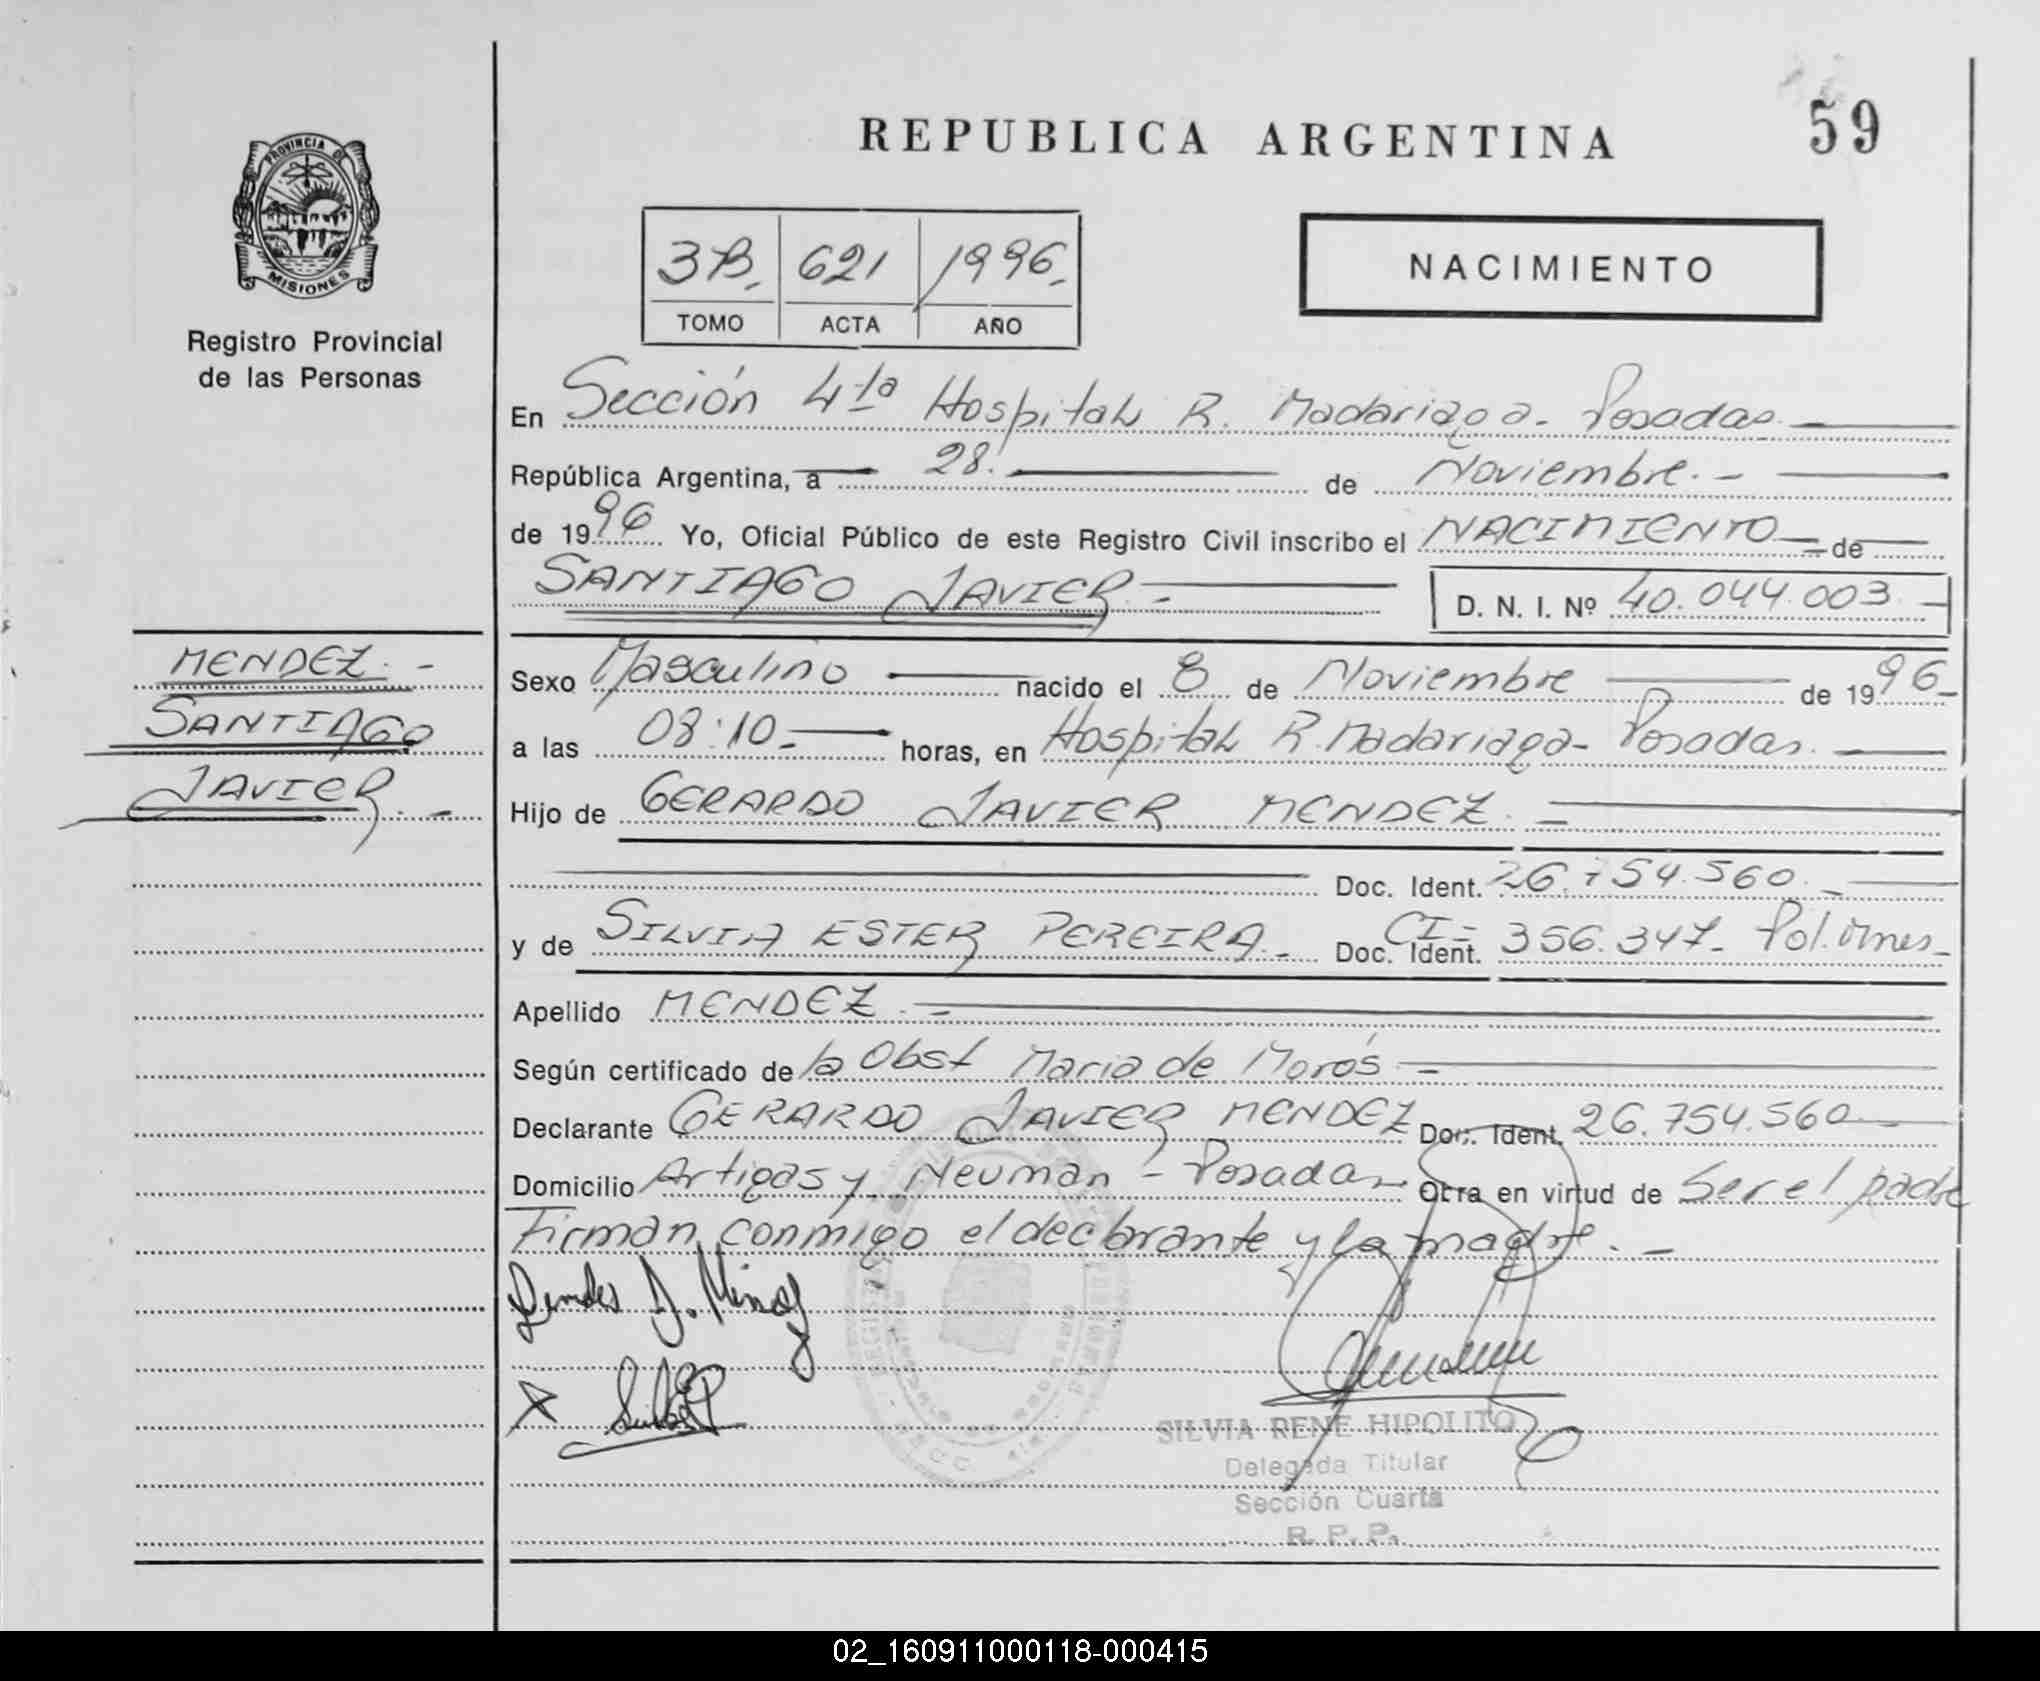 REPUBLICA ARGENTINA
59
PROVINCIA DE
MISIONES
Registro Provincial
de las Personas
3B. 621 1996.
TOMO ACTA AÑO
NACIMIENTO
En Sección 4ta Hospital R. Madariaga- Posadas.
República Argentina, a 28. de Noviembre. -
de 1996 Yo, Oficial Público de este Registro Civil inscribo el NACIMIENTO de
SANTIAGO JAVIER. - D. N. I. Nº 40.044.003. -
MENDEZ. -
SANTIAGO
JAVIER. -
Sexo Masculino nacido el 8 de Noviembre de 1996-
a las 08:10- horas, en Hospital R. Madariaga- Posadas.
Hijo de GERARDO JAVIER MENDEZ. -
Doc. Ident. 26.754.560. -
y de SILVIA ESTER PEREIRA. - Doc. Ident. CI- 356.347- Pol. Mnes-
Apellido MENDEZ. -
Según certificado de la Obst Maria de Morós -
Declarante GERARDO JAVIER MENDEZ Doc. Ident. 26.754.560 -
Domicilio Artigas y Neuman - Posadas- Otra en virtud de Ser el padre
Firman conmigo el declarante y la madre. -
X
SILVIA RENE HIPOLITO
Delegada Titular
Sección Cuarta
R. P. P.
02_160911000118-000415